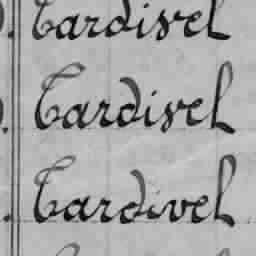 Tardivel
Tardivel
Tardivel